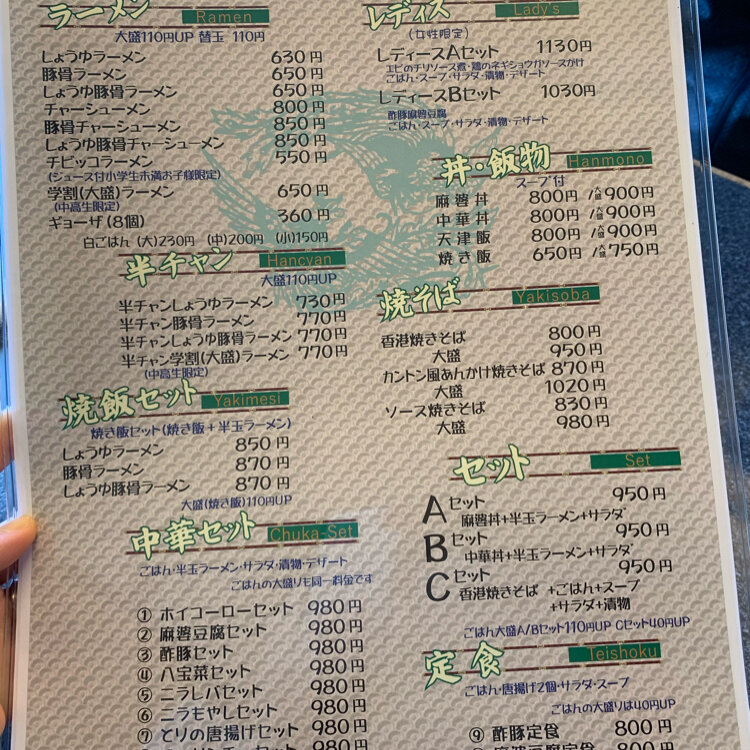 ラーメン Ramen
大盛110円UP 替玉 110円
しょうゆラーメン 630円
豚骨ラーメン 650円
しょうゆ豚骨ラーメン 650円
チャーシューメン 800円
豚骨チャーシューメン 850円
しょうゆ豚骨チャーシューメン 850円
チビッコラーメン 550円
(ジュース付小学生未満お子様限定)
学割(大盛)ラーメン 650円
(中高生限定)
ギョーザ(8個) 360円
白ごはん (大)230円 (中)200円 (小)150円
半チャン Hancyan
大盛110円UP
半チャンしょうゆラーメン 730円
半チャン豚骨ラーメン 770円
半チャンしょうゆ豚骨ラーメン 770円
半チャン学割(大盛)ラーメン 770円
(中高生限定)
焼飯セット Yakimesi
焼き飯セット(焼き飯+半玉ラーメン)
しょうゆラーメン 850円
豚骨ラーメン 870円
しょうゆ豚骨ラーメン 870円
大盛(焼き飯)110円UP
中華セット Chuka-Set
ごはん・半玉ラーメン・サラダ・漬物・デザート
ごはんの大盛りも同一料金です
① ホイコーローセット 980円
② 麻婆豆腐セット 980円
③ 酢豚セット 980円
④ 八宝菜セット 980円
⑤ ニラレバセット 980円
⑥ ニラもやしセット 980円
⑦ とりの唐揚げセット 980円
レディス Lady's
(女性限定)
レディースAセット 1130円
エビのチリソース煮・鶏のネギショウガソースかけ
ごはん・スープ・サラダ・漬物・デザート
レディースBセット 1030円
酢豚麻婆豆腐
ごはん・スープ・サラダ・漬物・デザート
丼・飯物 Hanmono
スープ付
麻婆丼 800円 /大盛900円
中華丼 800円 /大盛900円
天津飯 800円 /大盛900円
焼き飯 650円 /大盛750円
焼そば Yakisoba
香港焼きそば 800円
大盛 950円
カントン風あんかけ焼きそば 870円
大盛 1020円
ソース焼きそば 830円
大盛 980円
セット Set
Aセット 950円
麻婆丼+半玉ラーメン+サラダ
Bセット 950円
中華丼+半玉ラーメン+サラダ
Cセット 950円
香港焼きそば +ごはん+スープ
+サラダ+漬物
ごはん大盛A/Bセット110円UP Cセット40円UP
定食 Teishoku
ごはん・唐揚げ2個・サラダ・スープ
ごはんの大盛りは40円UP
⑨ 酢豚定食 800円